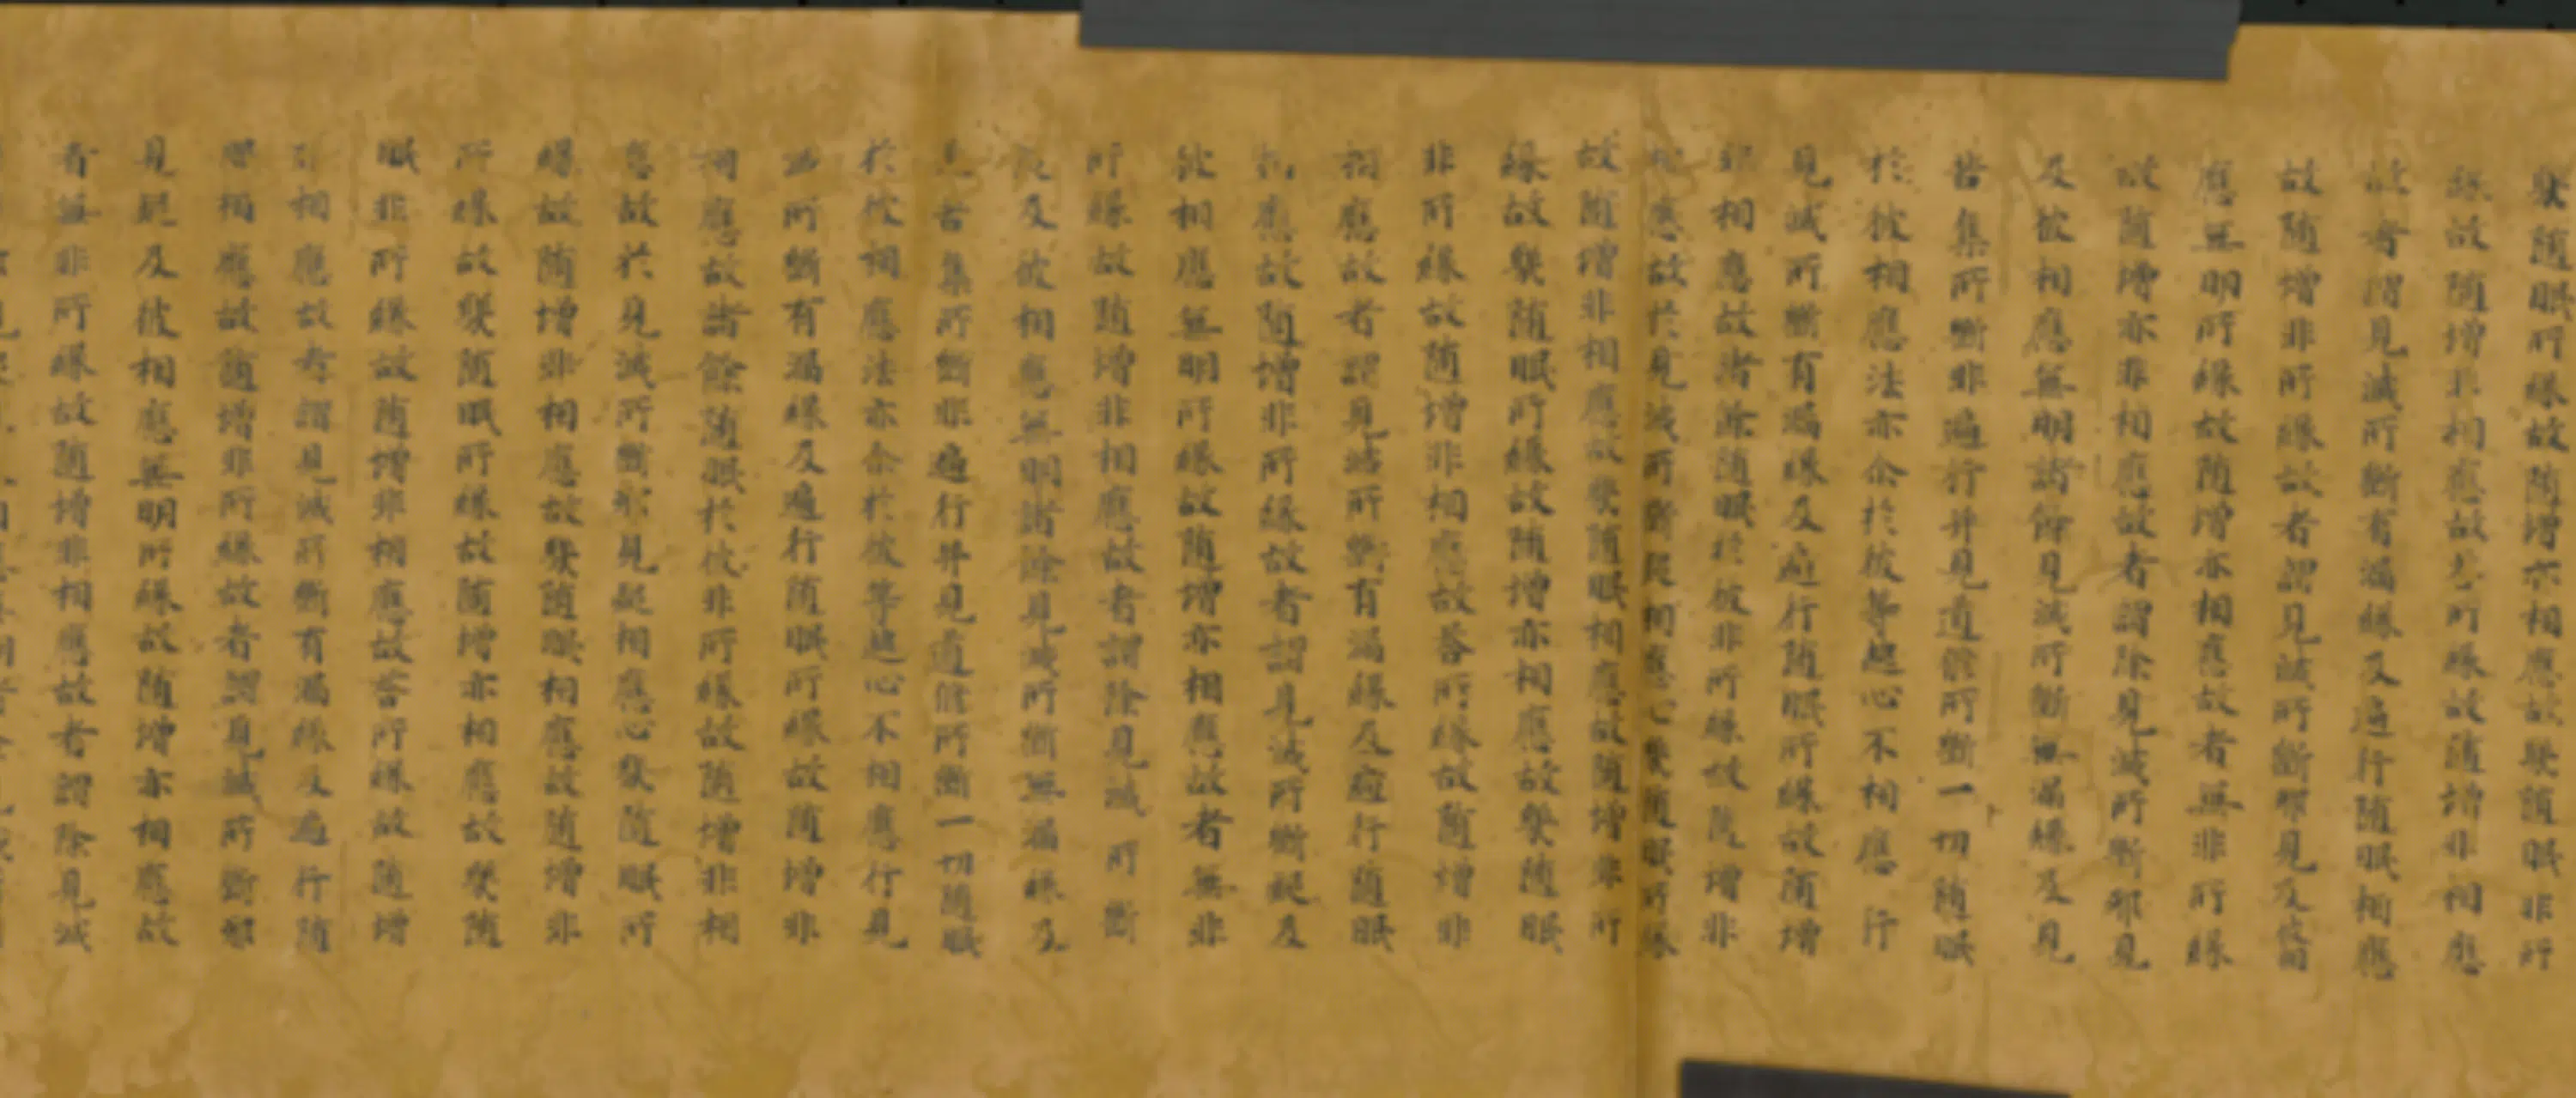 幾隨眠所緣故隨增亦相應故幾隨眠非所
緣故隨增非相應故答所緣故隨增非相應
故者謂見滅所斷有漏緣及遍行隨眠相應
故隨增非所緣故者謂見滅所斷邪見及彼相
應無明所緣故隨增亦相應故者無非所緣
故隨增亦非相應故者謂除見滅所斷邪見
及彼相應無明諸餘見滅所斷無漏緣及見
苦集所斷非遍行并見道修所斷一切隨眠
於彼相應法亦尒於彼等起心不相應行
見滅所斷有漏緣及遍行隨眠所緣故隨增
非相應故諸餘隨眠於彼非所緣故隨增非
相應故於見滅所斷疑相應心幾隨眠所緣
故隨增非相應故幾隨眠相應故隨增非所
緣故幾隨眠所緣故隨增亦相應故幾隨眠
非所緣故隨增非相應故答所緣故隨增非
相應故者謂見滅所斷有漏緣及遍行隨眠
相應故隨增非所緣故者謂見滅所斷疑及
彼相應無明所緣故隨增亦相應故者無非
所緣故隨增非相應故者謂除見滅所斷
疑及彼相應無明諸餘見滅所斷無漏緣及
見苦集所斷非遍行并見道修所斷一切隨眠
於彼相應法亦尒於彼等起心不相應行見
滅所斷有漏緣及遍行隨眠所緣故隨增非
相應故諸餘隨眠於彼非所緣故隨增非相
應故於見滅所斷邪見疑相應心幾隨眠所
緣故隨增非相應故幾隨眠相應故隨增非
所緣故幾隨眠所緣故隨增亦相應故幾隨
眠非所緣故隨增非相應故答所緣故隨增
非相應故者謂見滅所斷有漏緣及遍行隨
眠相應故隨增非所緣故者謂見滅所斷邪
見疑及彼相應無明所緣故隨增亦相應故
者無非所緣故隨增非相應故者謂除見滅